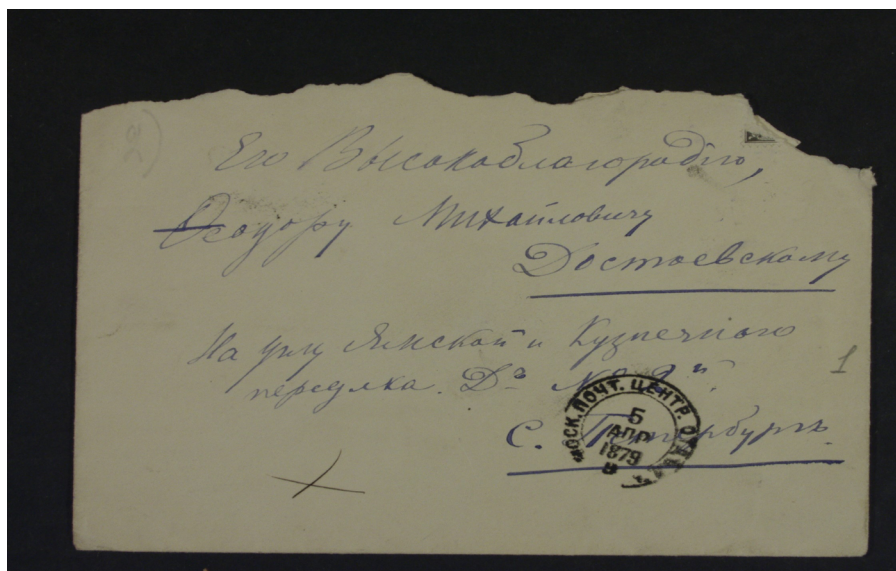 Его Высокоблагородію,
Ѳеодору Михайловичу
Достоевскому
На углу Ямской и Кузнечного
переулка. Д. №
1
С. Петербургъ.
МОСК. ПОЧТ. ЦЕНТР.
5
АПР
1879